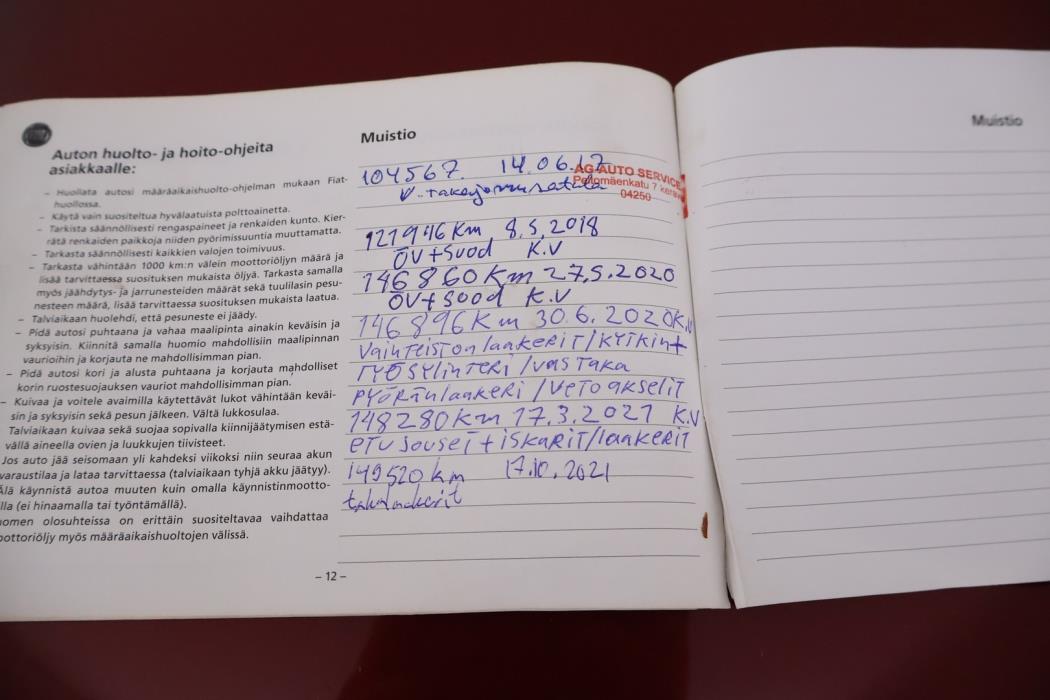 Auton huolto- ja hoito-ohjeita
asiakkaalle:
– Huollata autosi määräaikaishuolto-ohjelman mukaan Fiat-
huollossa.
– Käytä vain suositeltua hyvälaatuista polttoainetta.
– Tarkista säännöllisesti rengaspaineet ja renkaiden kunto. Kier-
rätä renkaiden paikkoja niiden pyörimissuuntia muuttamatta.
– Tarkasta säännöllisesti kaikkien valojen toimivuus.
– Tarkasta vähintään 1000 km:n välein moottoriöljyn määrä ja
lisää tarvittaessa suosituksen mukaista öljyä. Tarkasta samalla
myös jäähdytys- ja jarrunesteiden määrät sekä tuulilasin pesu-
nesteen määrä, lisää tarvittaessa suosituksen mukaista laatua.
– Talviaikaan huolehdi, että pesuneste ei jäädy.
– Pidä autosi puhtaana ja vahaa maalipinta ainakin keväisin ja
syksyisin. Kiinnitä samalla huomio mahdollisiin maalipinnan
vaurioihin ja korjauta ne mahdollisimman pian.
– Pidä autosi kori ja alusta puhtaana ja korjauta mahdolliset
korin ruostesuojauksen vauriot mahdollisimman pian.
– Kuivaa ja voitele avaimilla käytettävät lukot vähintään keväi-
sin ja syksyisin sekä pesun jälkeen. Vältä lukkosulaa.
Talviaikaan kuivaa sekä suojaa sopivalla kiinnijäätymisen estä-
vällä aineella ovien ja luukkujen tiivisteet.
Jos auto jää seisomaan yli kahdeksi viikoksi niin seuraa akun
varaustilaa ja lataa tarvittaessa (talviaikaan tyhjä akku jäätyy).
Älä käynnistä autoa muuten kuin omalla käynnistinmootto-
lla (ei hinaamalla tai työntämällä).
omen olosuhteissa on erittäin suositeltavaa vaihdattaa
oottoriöljy myös määräaikaishuoltojen välissä.
– 12 –
Muistio
104567. 14.06.17
AG AUTO SERVICE
Peltomäenkatu 7 kerava
04250
121946 Km 8.5.2018
ÖV+Suod K.V
146860 Km 27.5.2020
ÖV+Suod K.V
146896 Km 30.6.2020 K.V
Vaihteistonlaakerit/Kytkin+
TYÖSYLINTERI/VASTAKA
PYÖRÄNlaakeri/Vetoakselit
148280 Km 17.3.2021 K.V
etu Jouset+iskarit/laakerit
149520 km 17.10.2021
takalaakerit
Muistio